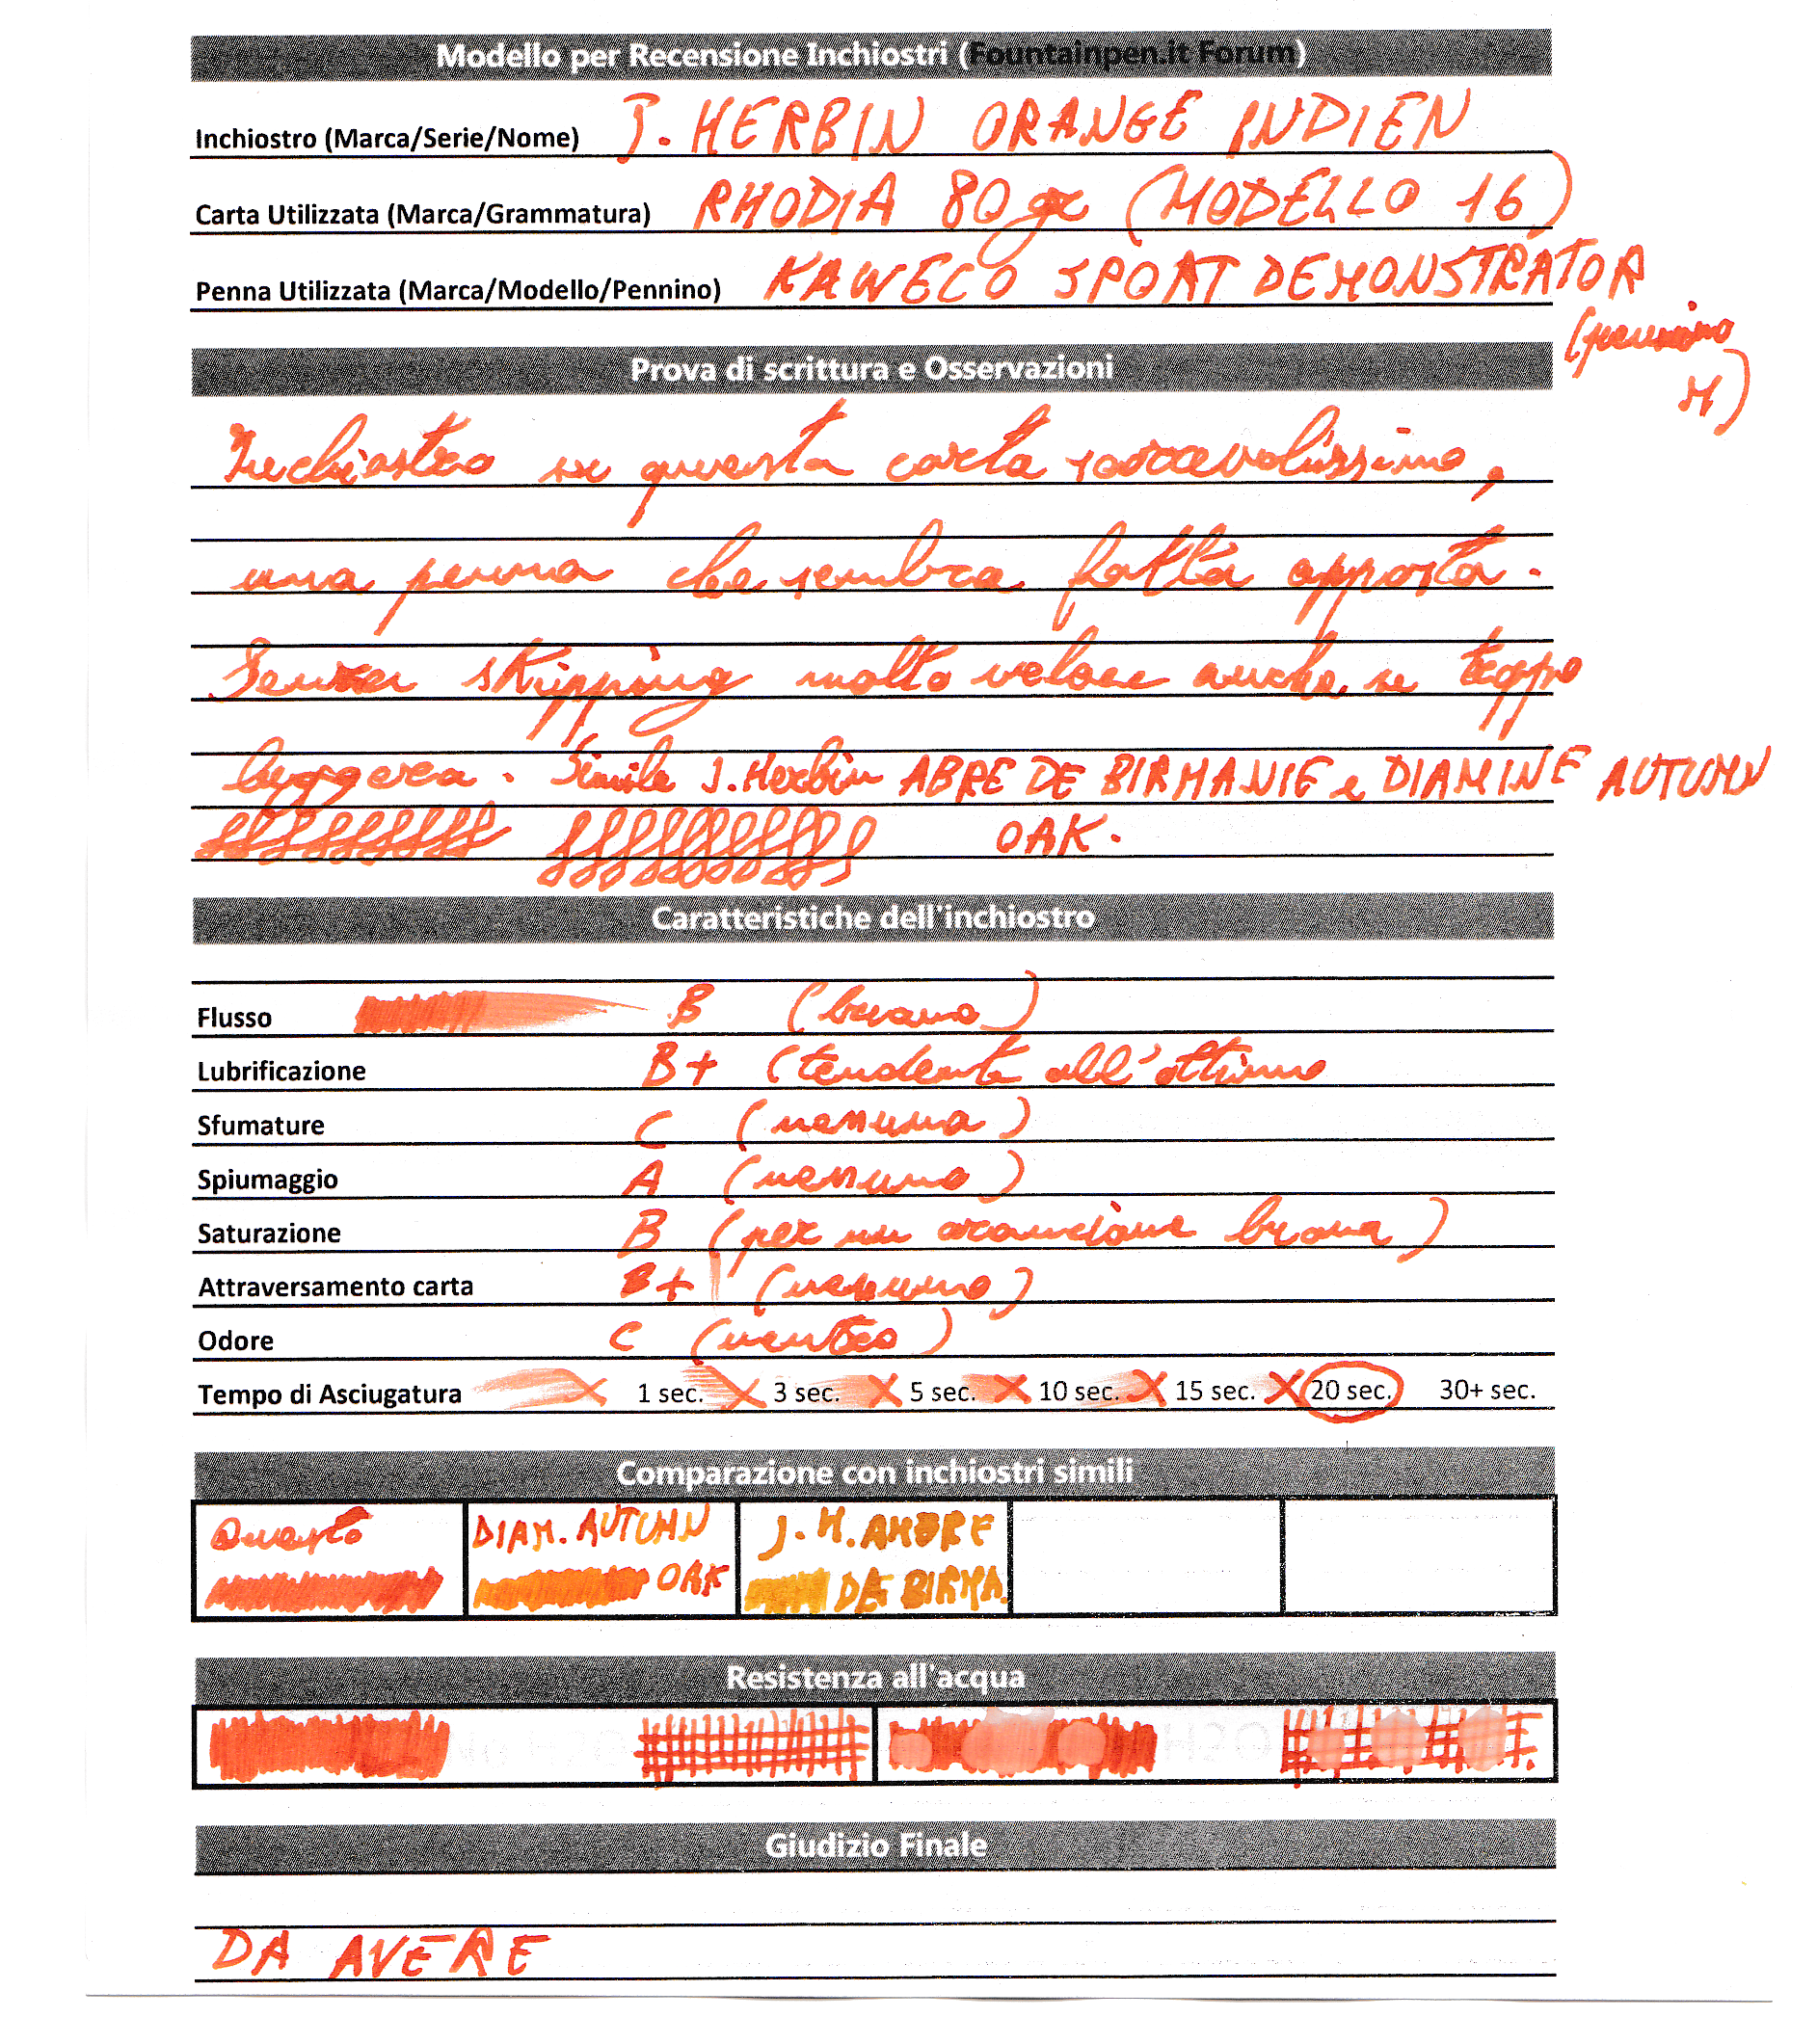 Modello per Recensione Inchiostri (Fountainpen.it Forum)
Inchiostro (Marca/Serie/Nome) J. HERBIN ORANGE INDIEN
Carta Utilizzata (Marca/Grammatura) RHODIA 80 gr (MODELLO 16)
Penna Utilizzata (Marca/Modello/Pennino) KAWECO SPORT DEMONSTRATOR
(pennino
M)
Prova di scrittura e Osservazioni
Inchiostro su questa carta scorrevolissimo,
una penna che sembra fatta apposta.
Senza skipping molto veloce anche se troppo
leggera. Simile J. Herbin ABRE DE BIRMANIE e DIAMINE AUTUMN
OAK.
Caratteristiche dell'inchiostro
Flusso B (buono)
Lubrificazione B+ (tendente all'ottimo
Sfumature C (nessuna)
Spiumaggio A (nessuno)
Saturazione B (per un arancione buona)
Attraversamento carta B+ (nessuno)
Odore C (neutro)
Tempo di Asciugatura 1 sec. 3 sec. 5 sec. 10 sec. 15 sec. 20 sec. 30+ sec.
Comparazione con inchiostri simili
Questo DIAM. AUTUMN J. H. AMBRE
OAK DE BIRMA.
Resistenza all'acqua
Giudizio Finale
DA AVERE